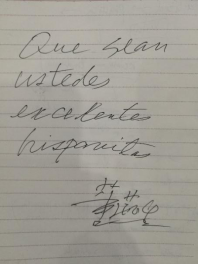 Que sean
ustedes
excelentes
hispanistas